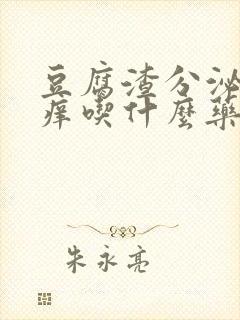 豆腐渣分泌
痒喫什麼藥
朱永亮